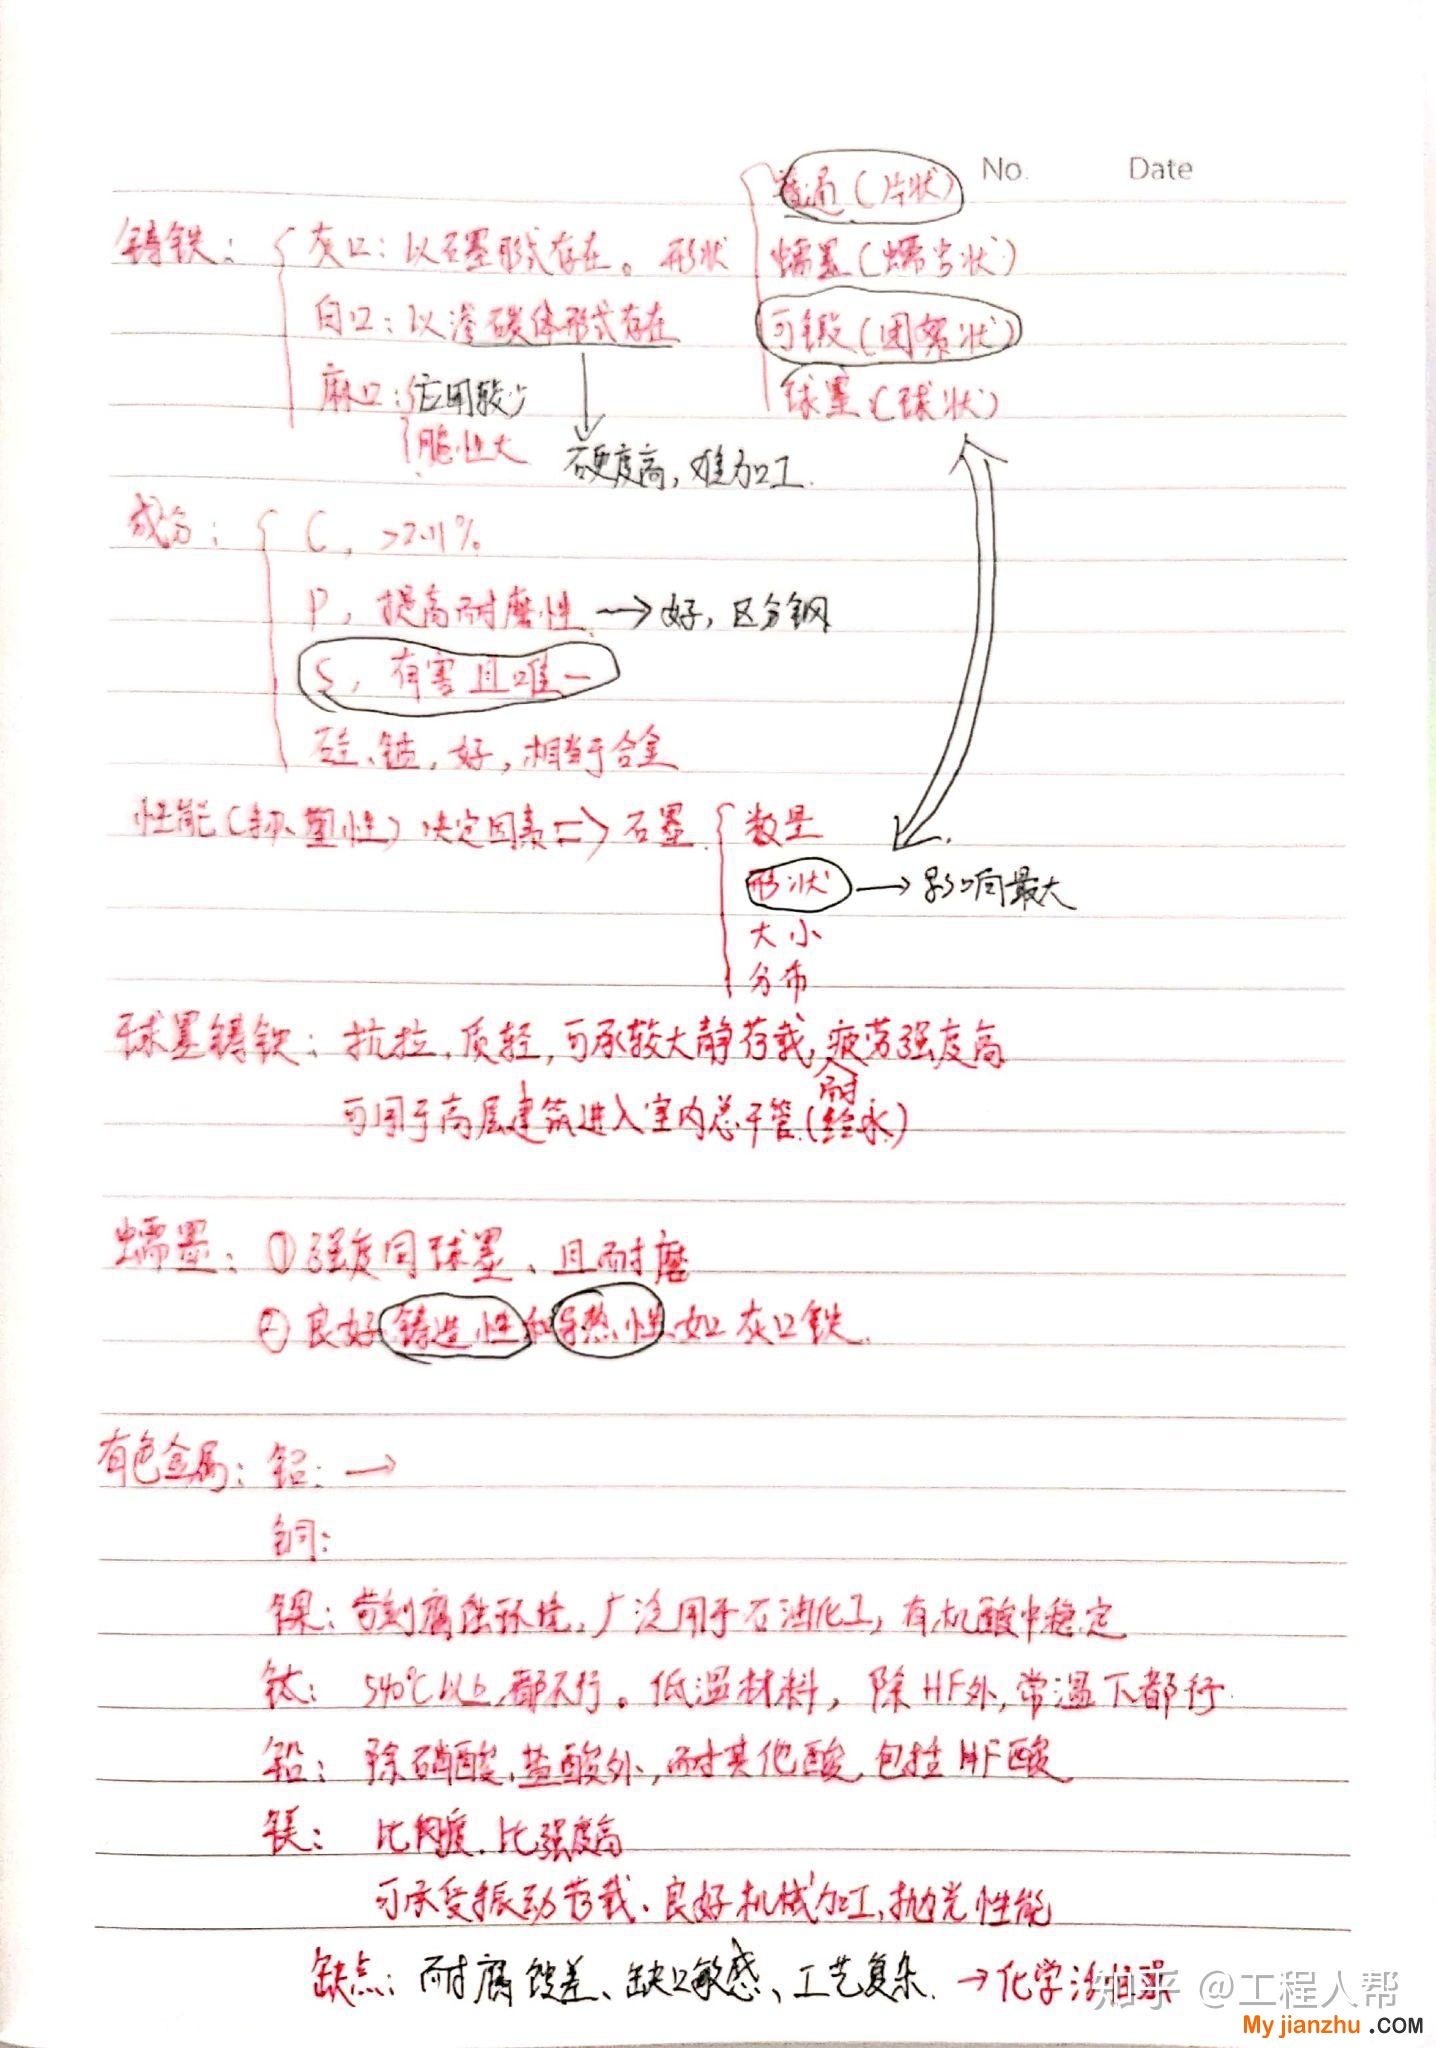 No. Date
普通(片状)
铸铁: 灰口: 以石墨形式存在。 形状 蠕墨(蠕虫状)
白口: 以渗碳体形式存在 可锻(团絮状)
麻口: 应用较少 球墨(球状)
脆性大 硬度高, 难加工.
成分: C, >2.11%
P, 提高耐磨性 → 好, 区分钢
S, 有害且唯一
硅、锰, 好, 相当于合金
性能(韧、塑性) 决定因素 => 石墨 数量
形状 → 影响最大
大小
分布
球墨铸铁: 抗拉、质轻, 可承较大静荷载, 疲劳强度高
耐
可用于高层建筑进入室内总干管.(给水)
蠕墨: ①强度同球墨、且耐磨
② 良好铸造性和导热性、如灰口铁.
有色金属: 铝: →
铜:
镍: 苛刻腐蚀环境, 广泛用于石油化工, 有机酸中稳定
钛: 540℃以上都不行。低温材料, 除HF外, 常温下都行.
铅: 除硝酸、盐酸外, 耐其他酸, 包括HF酸
镁: 比刚度、比强度高
可承受振动荷载、良好机械加工、抛光性能
缺点: 耐腐蚀差、缺口敏感、工艺复杂. → 化学活
知乎 @工程人帮
Myjianzhu.COM